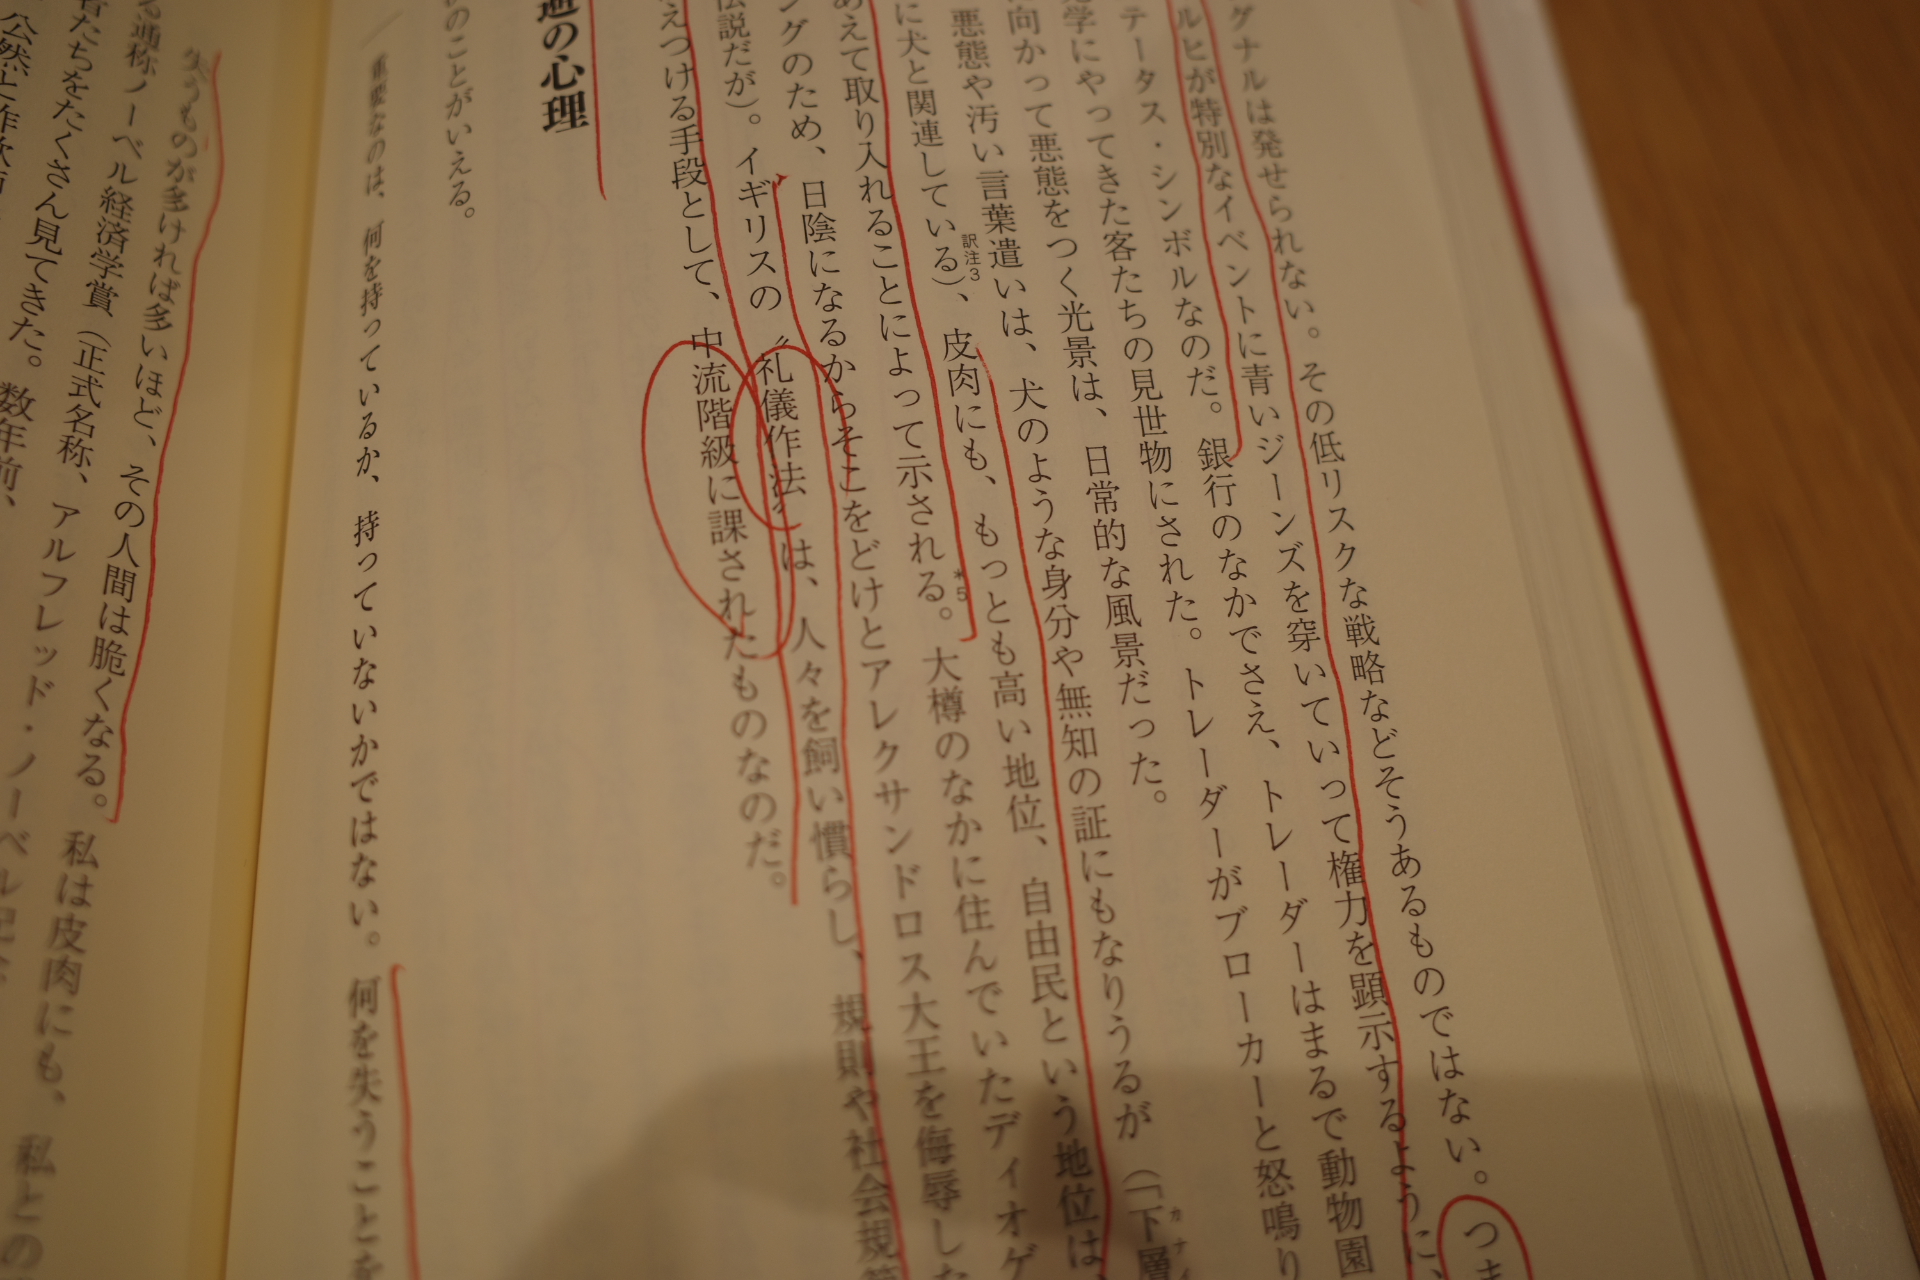 グナルは発せられない。その低リスクな戦略などそうあるものではない。つま
ルヒが特別なイベントに青いジーンズを穿いていって権力を顕示するように、
テータス・シンボルなのだ。銀行のなかでさえ、トレーダーはまるで動物園
学にやってきた客たちの見世物にされた。トレーダーがブローカーと怒鳴り
に向かって悪態をつく光景は、日常的な風景だった。
悪態や汚い言葉遣いは、犬のような身分や無知の証にもなりうるが(「下層
に犬と関連している)、皮肉にも、もっとも高い地位、自由民という地位は、
訳注3
あえて取り入れることによって示される。大樽のなかに住んでいたディオゲ
*5
ングのため、日陰になるからそこをどけとアレクサンドロス大王を侮辱した
伝説だが)。イギリスの〝礼儀作法〟は、人々を飼い慣らし、規則や社会規
えつける手段として、中流階級に課されたものなのだ。
の心理
のことがいえる。
重要なのは、何を持っているか、持っていないかではない。何を失うことを
失うものが多ければ多いほど、その人間は脆くなる。
通称ノーベル経済学賞(正式名称、アルフレッド・ノーベル記念
者たちをたくさん見てきた。
私は皮肉にも、私との
数年前、